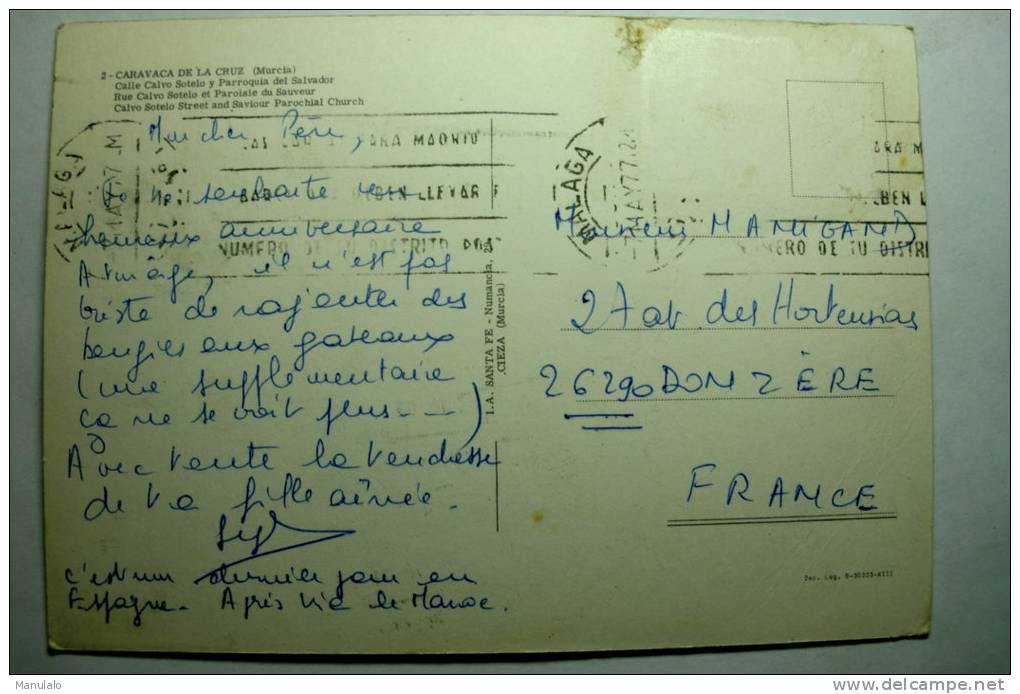 2 - CARAVACA DE LA CRUZ (Murcia)
Calle Calvo Sotelo y Parroquia del Salvador
Rue Calvo Sotelo et Paroisie du Sauveur
Calvo Sotelo Street and Saviour Parochial Church
Mon cher Père,
Je te souhaite un
heureux anniversaire
A ton âge, il n'est pas
triste de rajouter des
bougies aux gateaux
(une supplémentaire
ça ne se voit plus...)
Avec toute la tendresse
de ta fille aînée.
c'est mon dernier jour en
Espagne. Après vive le Maroc.
I.A. SANTA FE - Numancia, 2
CIEZA (Murcia)
MALAGA
MAY 77
PARA MADRID
DEBEN LLEVAR
NUMERO DE TU DISTRITO POS
MALAGA
MAY 77
ARA M
EBEN L
ERO DE TU DISTRI
Monsieur MANIGAND
27 av. des Hortensias
26290 DONZÈRE
FRANCE
Dep. Leg. B-30223-XIII
Manulalo
delcampe.net